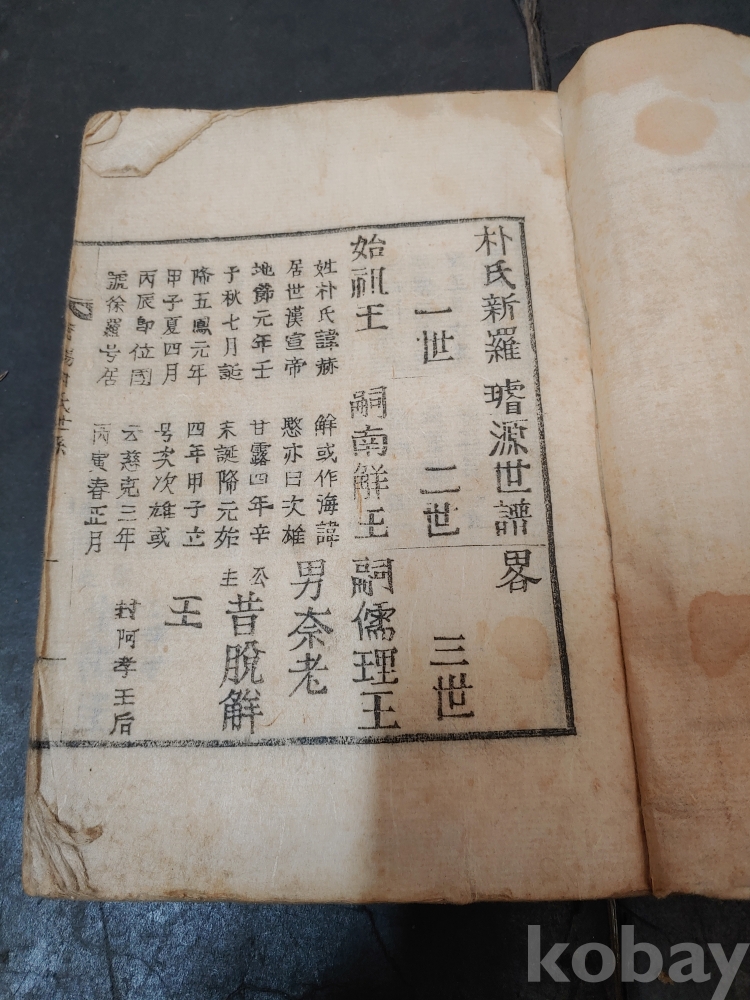 朴氏新羅璿源世譜畧
一世
始祖王
姓朴氏諱赫
居世漢宣帝
地節元年壬
子秋七月誕
降五鳳元年
甲子夏四月
丙辰卽位國
號徐羅号居
二世
嗣南解王
解或作海諱
慜亦曰次雄
甘露四年辛
未誕降元始
四年甲子立
号次次雄或
云慈充三年
丙寅春正月
三世
嗣儒理王
男奈老
公主
昔脫解
王
封阿孝王后
朴氏世系
kobay